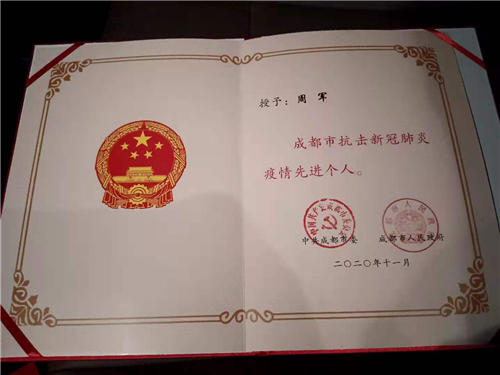 授予：周军
成都市抗击新冠肺炎
疫情先进个人。
中共成都市委 成都市人民政府
二〇二〇年十一月